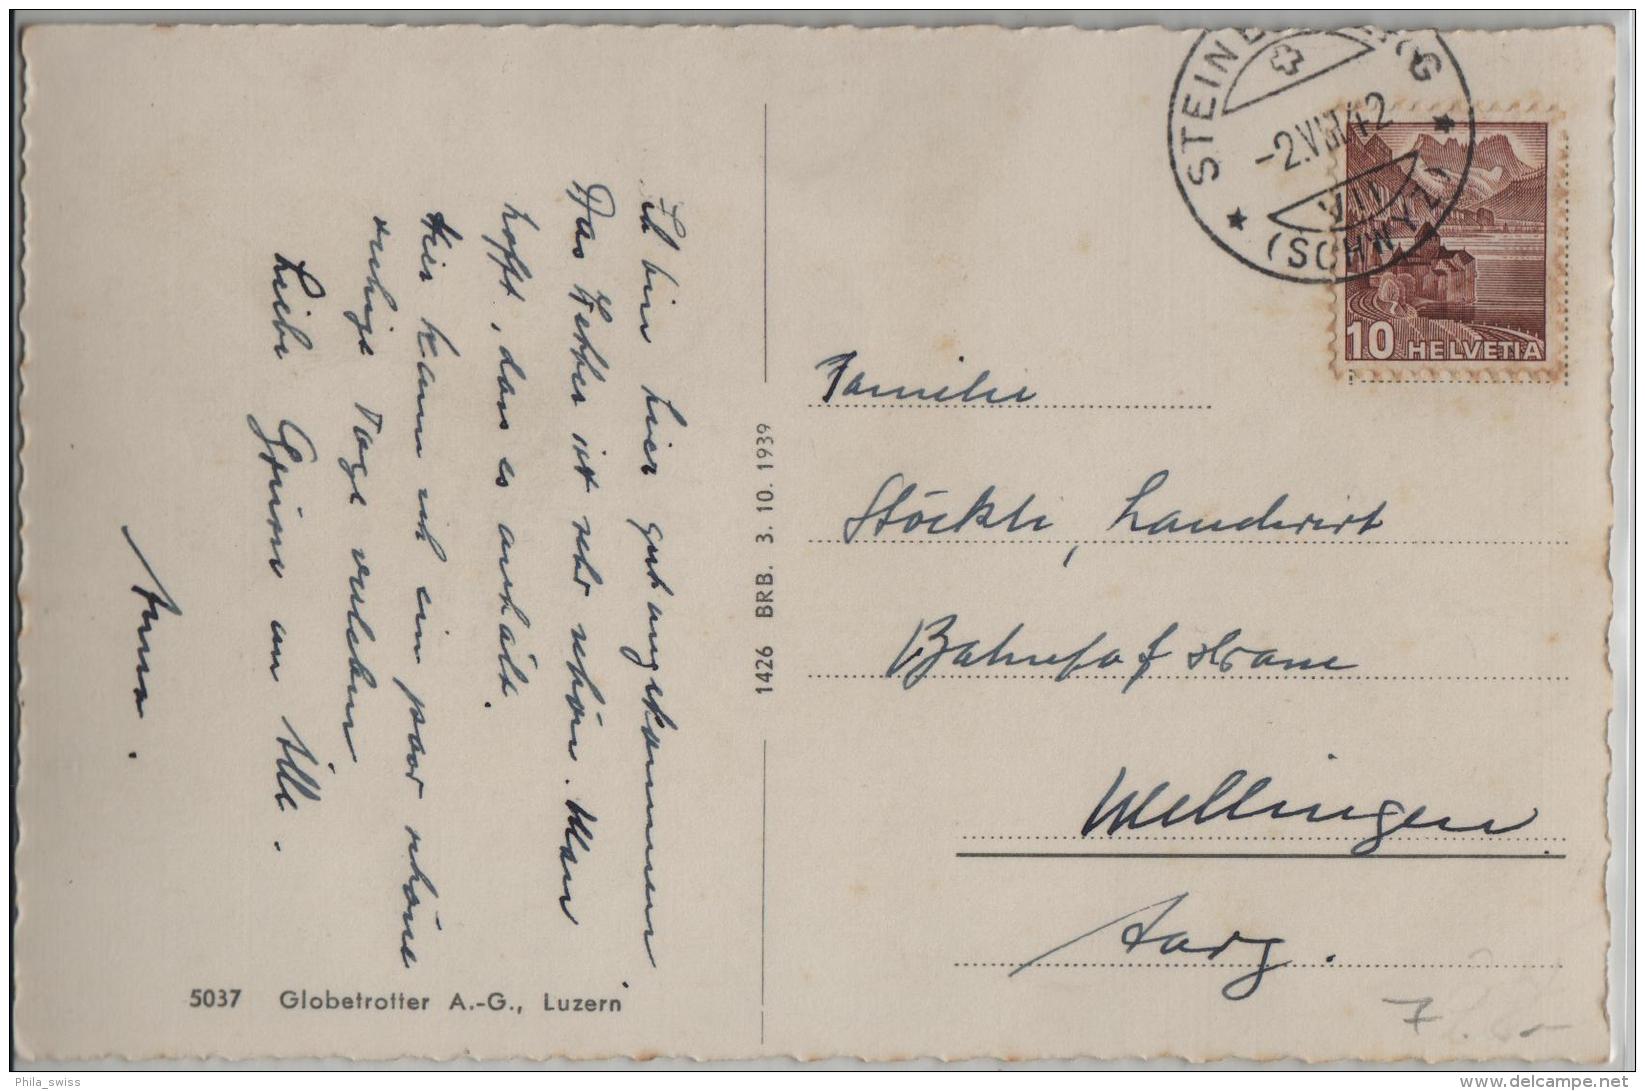 Ich bin hier gut angekommen.
Das Wetter ist sehr schön. Man
hofft, dass es anhält.
Hier kann ich ein paar schöne
ruhige Tage erleben
Liebe Grüsse an Alle.
Anna.
5037 Globetrotter A.-G., Luzern
1426 BRB. 3. 10. 1939
STEIN
-2.VIII.42
(SCHWYZ)
10 HELVETIA
Familie
Stöckli, Landwirt
Bahnhofstrasse
Mellingen
Aarg.
7
Phila_swiss
delcampe.net